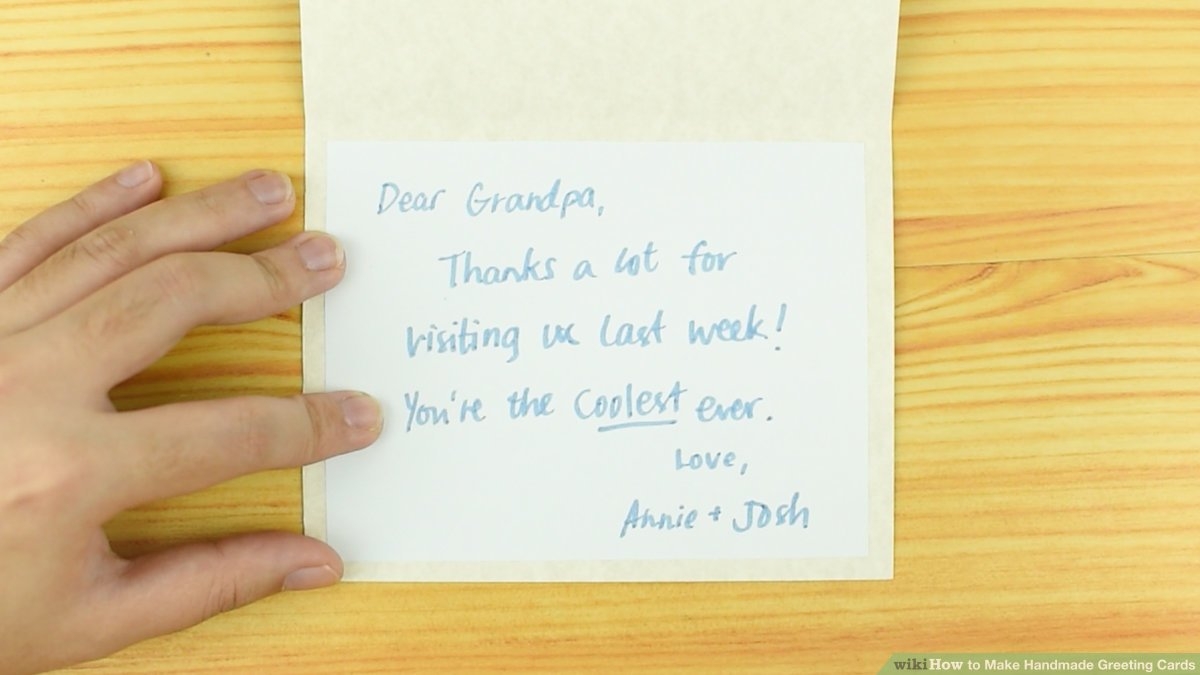 Dear Grandpa,
Thanks a lot for
visiting us last week!
You're the Coolest ever.
Love,
Annie + Josh
wikiHow to Make Handmade Greeting Cards